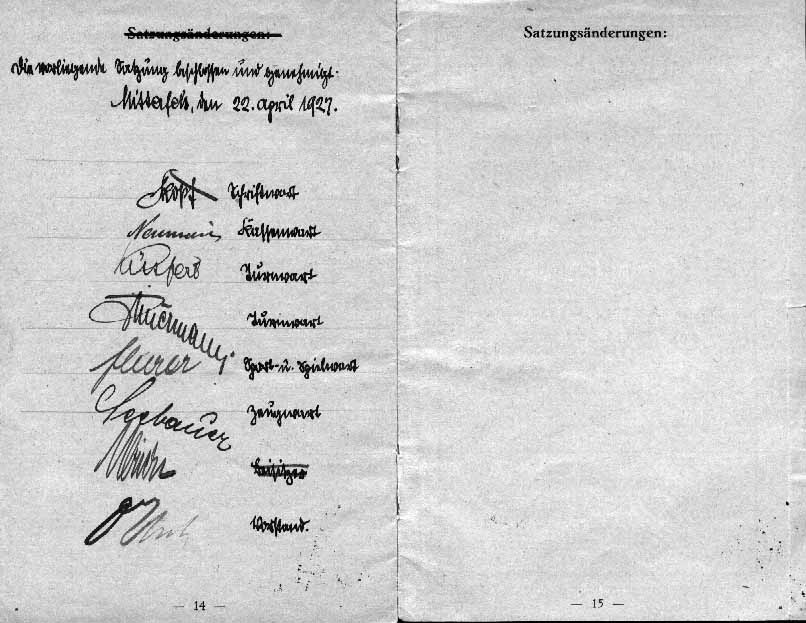 Satzungsänderungen:
Die vorliegende Satzung beschlossen und genehmigt.
Mitterfels, den 22. April 1927.
Schriftwart
Neumair Kassenwart
Turnwart
Turnwart
Sport- u. Spielwart
Seebauer Zeugwart
Beisitzer
Vorstand.
— 14 —
Satzungsänderungen:
— 15 —